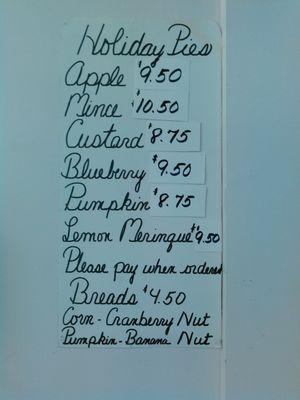 Holiday Pies
Apple $9.50
Mince $10.50
Custard $8.75
Blueberry $9.50
Pumpkin $8.75
Lemon Meringue $9.50
Please pay when ordered
Breads $4.50
Corn - Cranberry Nut
Pumpkin - Banana Nut